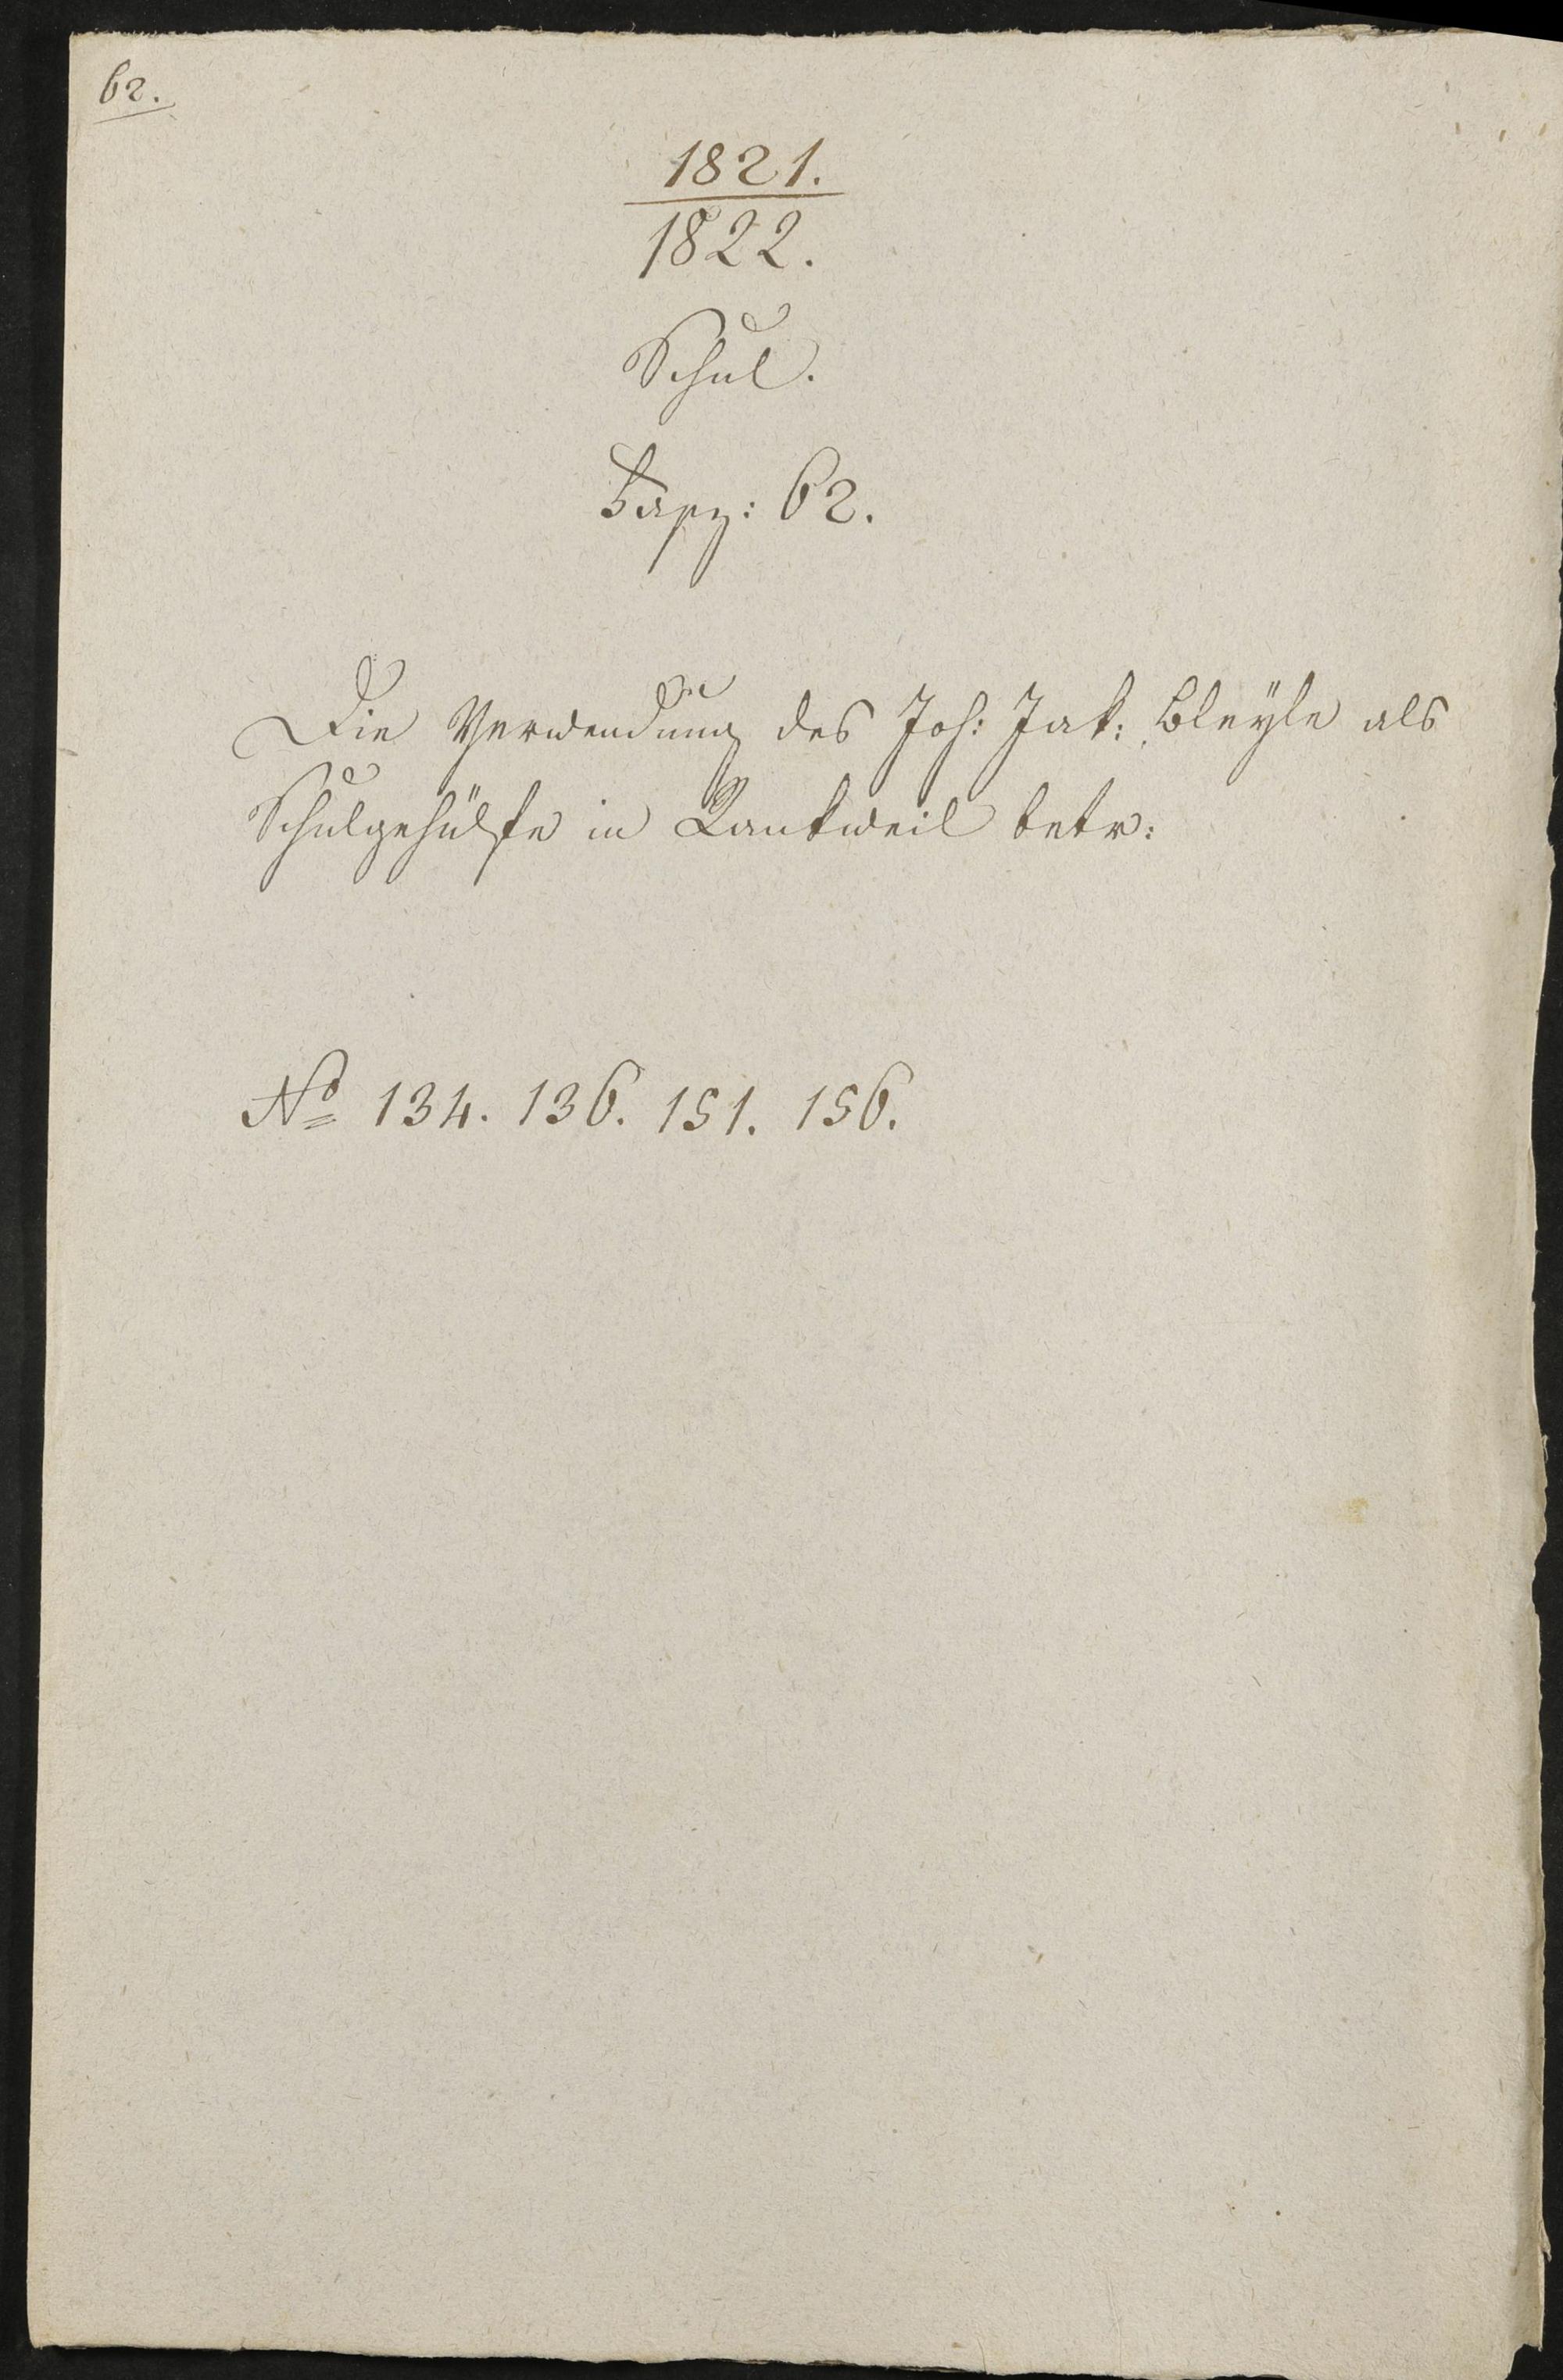 62.
1821.
1822.
Schul.
Fasz: 62.
Die Verwendung des Joh: Jak: Bleyle als
Schulgehülfe in Rankweil betr:
No 134. 136. 151. 156.